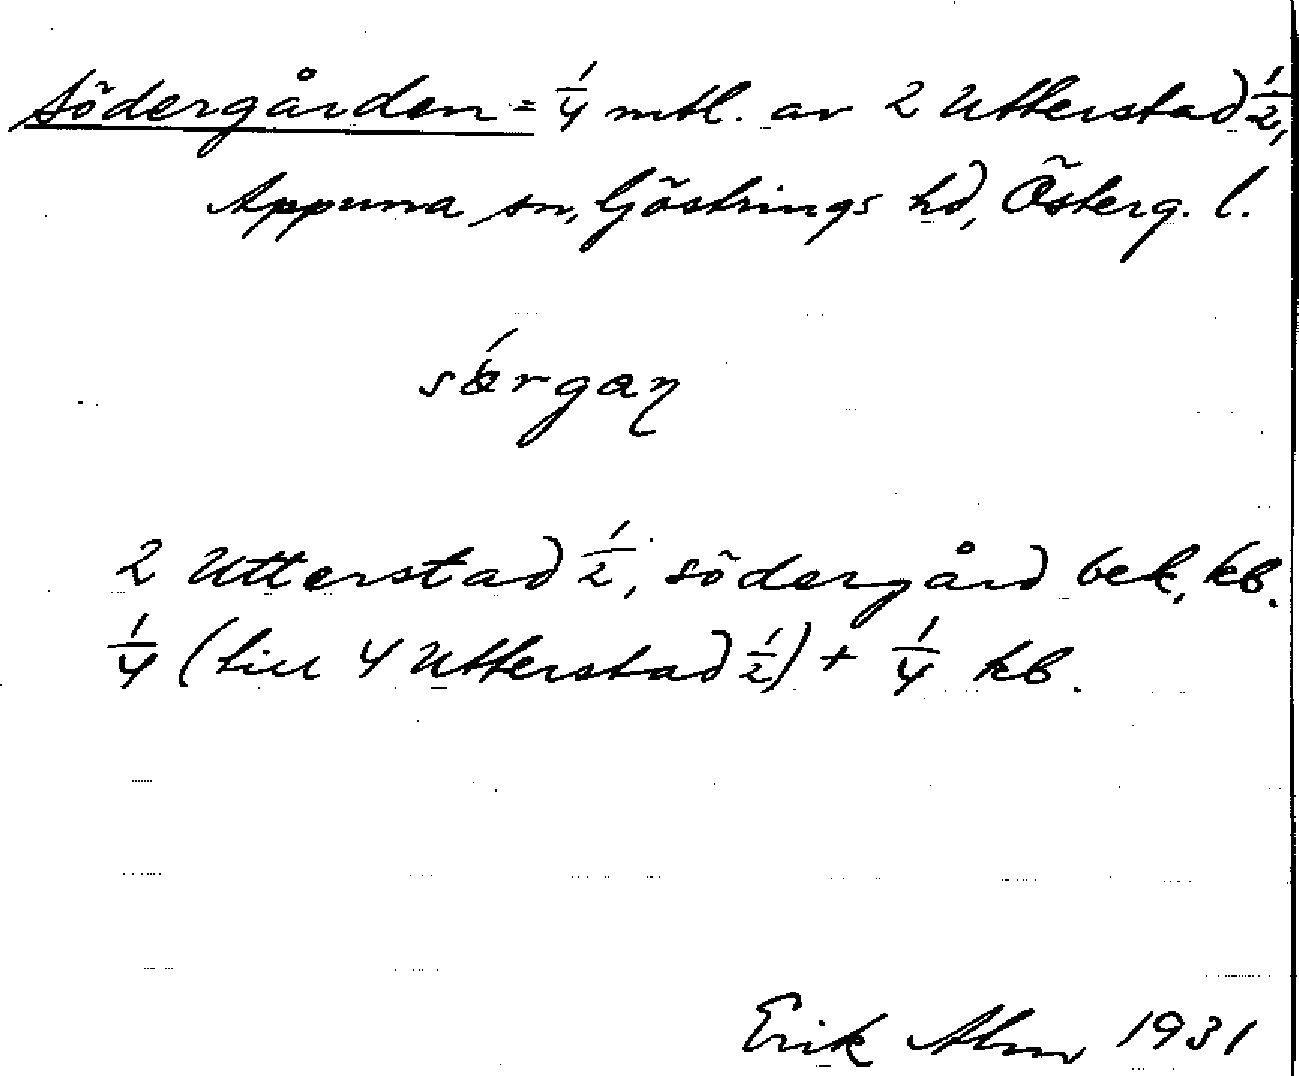 Södergården = 1/4 mtl. av 2 Utterstad 1/2,
Appuna sn, Göstrings hd, Österg. l.
2 Utterstad 1/2, södergård bek, kb.
1/4 (till 4 Utterstad 1/2) + 1/4 kb.
Erik Alm 1931